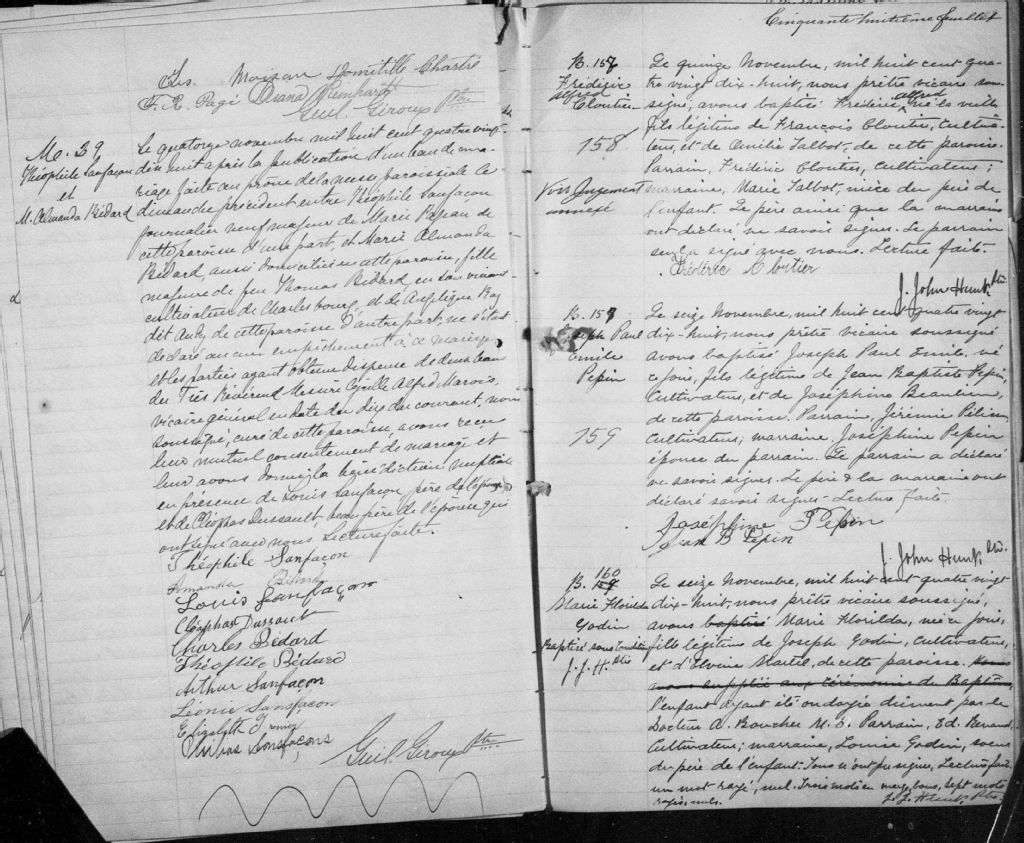 Frs. Moisan Domitille Chartré
F. X. Pagé Diana
Guil. Giroux Ptre
M. 39
Théophile Sanfaçon
et
M. Almanda Bédard
Le quatorze novembre mil huit cent quatre vingt
dix huit après la publication d'un ban de ma-
riage faite au prône de la messe paroissiale le
dimanche précédent entre Théophile Sanfaçon
journalier neuf majeur de Marie Pageau de
cette paroisse d'une part, et Marie Almanda
Bédard, aussi domiciliée en cette paroisse, fille
majeure de feu Thomas Bédard, en son vivant
cultivateur de Charlesbourg, et de Angélique Roy
dit Audy de cette paroisse d'autre part, ne s'étant
déclaré aucun empêchement à ce mariage
et les parties ayant obtenu dispense de deux bans
du Très Révérend Messire Cyrille Alfred Marois
vicaire général en date du dix du courant, nous
soussigné, curé de cette paroisse, avons reçu
leur mutuel consentement de mariage et
leur avons donné la bénédiction nuptiale
en présence de Louis Sanfaçon père de l'époux
et de Cléophas Dussault, beau père de l'épouse qui
ont signé avec nous Lecture faite.
Théophile Sanfacon
Amanda Bédard
Louis Sanfaçon
Cléophas Dussault
Charles Bédard
Théophile Bédard
Arthur Sanfaçon
Léonie Sansfacon
Elizabeth
Sansfaçons
Guil. Giroux Ptre
Cinquante huitième feuillet
B. 157
Frédéric
alfred
Cloutier
158
Voir Jugement
annexé
Le quinze Novembre, mil huit cent qua-
tre vingt dix-huit, nous prêtre vicaire sous-
signé, avons baptisé Frédéric alfred, né la veille
fils légitime de François Cloutier, Cultiva-
teur, et de Emilie Talbot, de cette paroisse.
Parrain, Frédéric Cloutier, Cultivateur;
marraine, Marie Talbot, nièce du père de
l'enfant. Le père ainsi que la marraine
ont déclaré ne savoir signer. Le parrain
seul a signé avec nous. Lecture faite.
Frédéric Cloutier
J. John Hunt, Ptre.
B. 158
Joseph Paul
Emile
Pepin
159
Le seize Novembre, mil huit cent quatre vingt
dix-huit, nous prêtre vicaire soussigné
avons baptisé Joseph Paul Emile, né
ce jour, fils légitime de Jean Baptiste Pepin,
Cultivateur, et de Joséphine Beaulieu,
de cette paroisse. Parrain, Jérémie
Cultivateur; marraine, Joséphine Pepin
épouse du parrain. Le parrain a déclaré
ne savoir signer. Le père & la marraine ont
déclaré savoir signer - Lecture faite.
Joséphine Pepin
Jean B Pepin
J. John Hunt, Ptre.
160
B. 159
Marie Florilda
Godin
Baptisé sous Condition
J. J. H. Ptre
Le seize Novembre, mil huit cent quatre vingt
dix-huit, nous prêtre vicaire soussigné,
avons baptisé Marie Florilda, née ce jour,
fille légitime de Joseph Godin, Cultivateur,
et d'Elvine Martel, de cette paroisse. Nous
avons suppléé aux cérémonies du Baptême,
l'enfant ayant été ondoyée dûment par le
Docteur A. Boucher M. D. Parrain, Ed. Renaud,
Cultivateur; marraine, Louise Godin, soeur
du père de l'enfant. Tous n'ont pu signer, Lecture faite
un mot rayé, nul. Trois mots en marge, bons, Sept mots
rayés, nuls.
J. J. Hunt, Ptre.